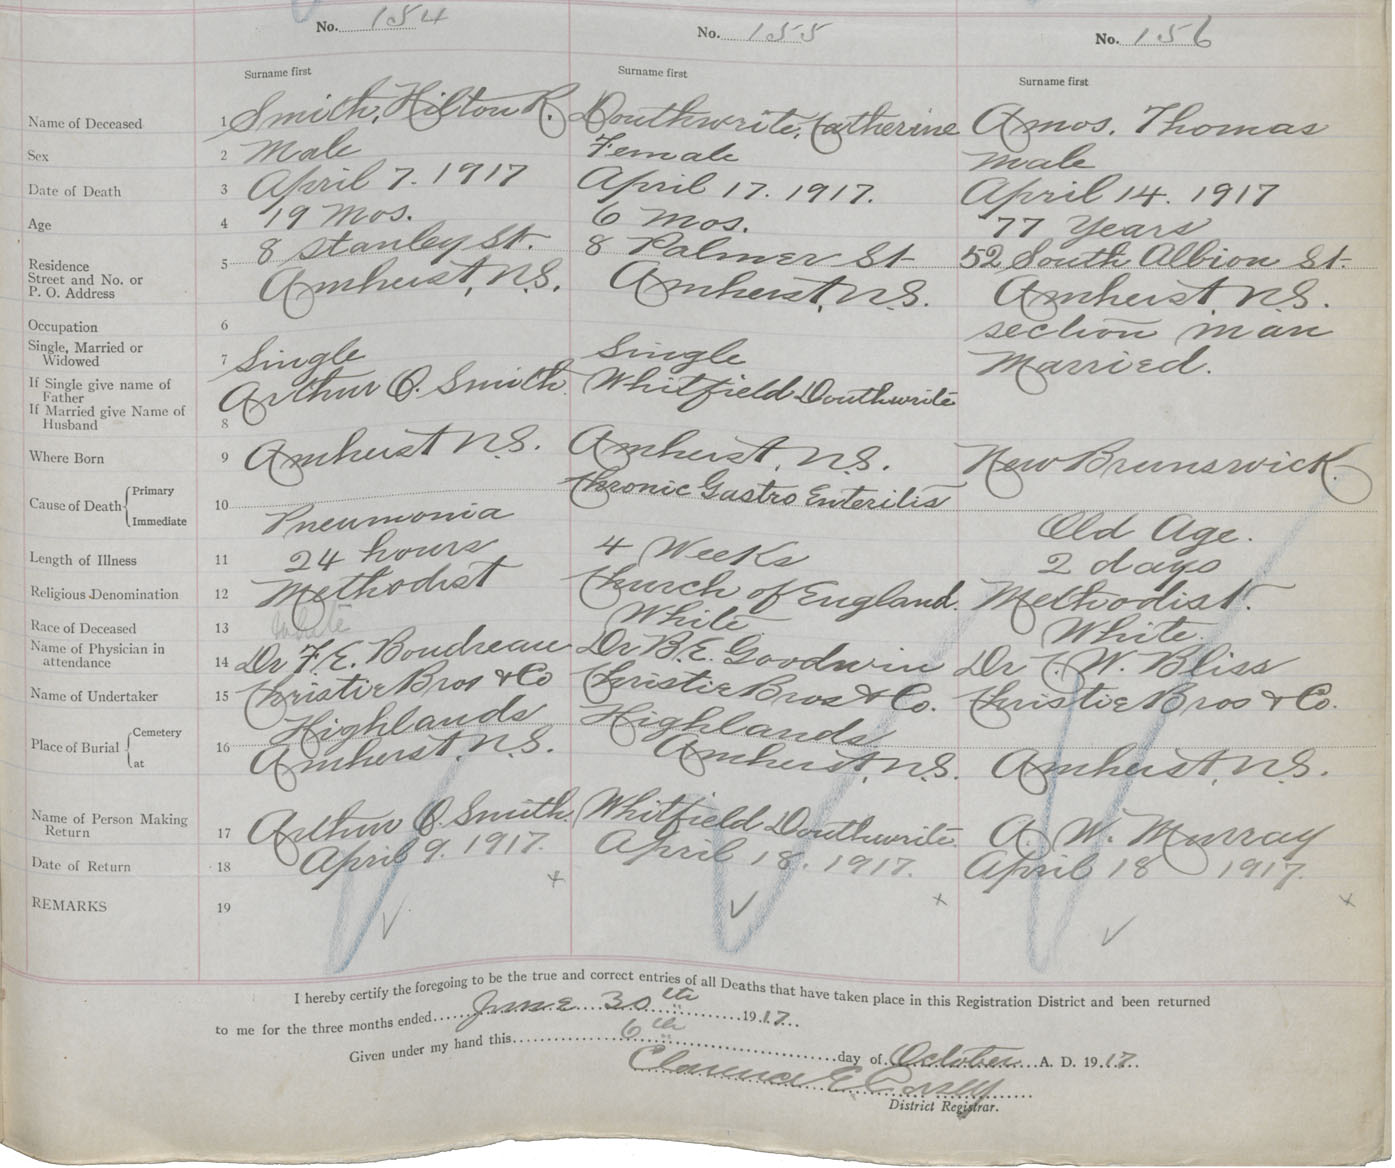 No. 154
No. 155
No. 156
Surname first
Surname first
Surname first
Name of Deceased 1 Smith, Hilton R. Douthwrite, Catherine Amos, Thomas
Sex 2 Male Female Male
Date of Death 3 April 7. 1917 April 17. 1917. April 14. 1917
Age 4 19 Mos. 6 Mos. 77 Years
Residence 5 8 Stanley St. 8 Palmer St 52 South Albion St.
Street and No. or
P. O. Address Amherst, N.S. Amherst, N.S. Amherst, N.S.
Occupation 6 section man
Single, Married or
Widowed 7 Single Single Married.
If Single give name of
Father Arthur O. Smith Whitfield Douthwrite
If Married give Name of
Husband 8
Where Born 9 Amherst N.S. Amherst, N.S. New Brunswick
Cause of Death Primary 10 Chronic Gastro Enteritis
Immediate Pneumonia Old Age.
Length of Illness 11 24 hours 4 Weeks 2 days
Religious Denomination 12 Methodist Church of England. Methodist.
Race of Deceased 13 White White White.
Name of Physician in
attendance 14 Dr F. E. Boudreau Dr B. E. Goodwin Dr C. W. Bliss
Name of Undertaker 15 Christie Bros & Co Christie Bros & Co. Christie Bros & Co.
Place of Burial Cemetery 16 Highlands Highlands
at Amherst, N.S. Amherst, N.S. Amherst, N.S.
Name of Person Making
Return 17 Arthur O. Smith. Whitfield Douthwrite. A. W. Murray
Date of Return 18 April 9. 1917. April 18. 1917. April 18 1917.
REMARKS 19
I hereby certify the foregoing to be the true and correct entries of all Deaths that have taken place in this Registration District and been returned
to me for the three months ended June 30th 1917.
Given under my hand this 6th day of October A. D. 1917.
Clarence E.
District Registrar.